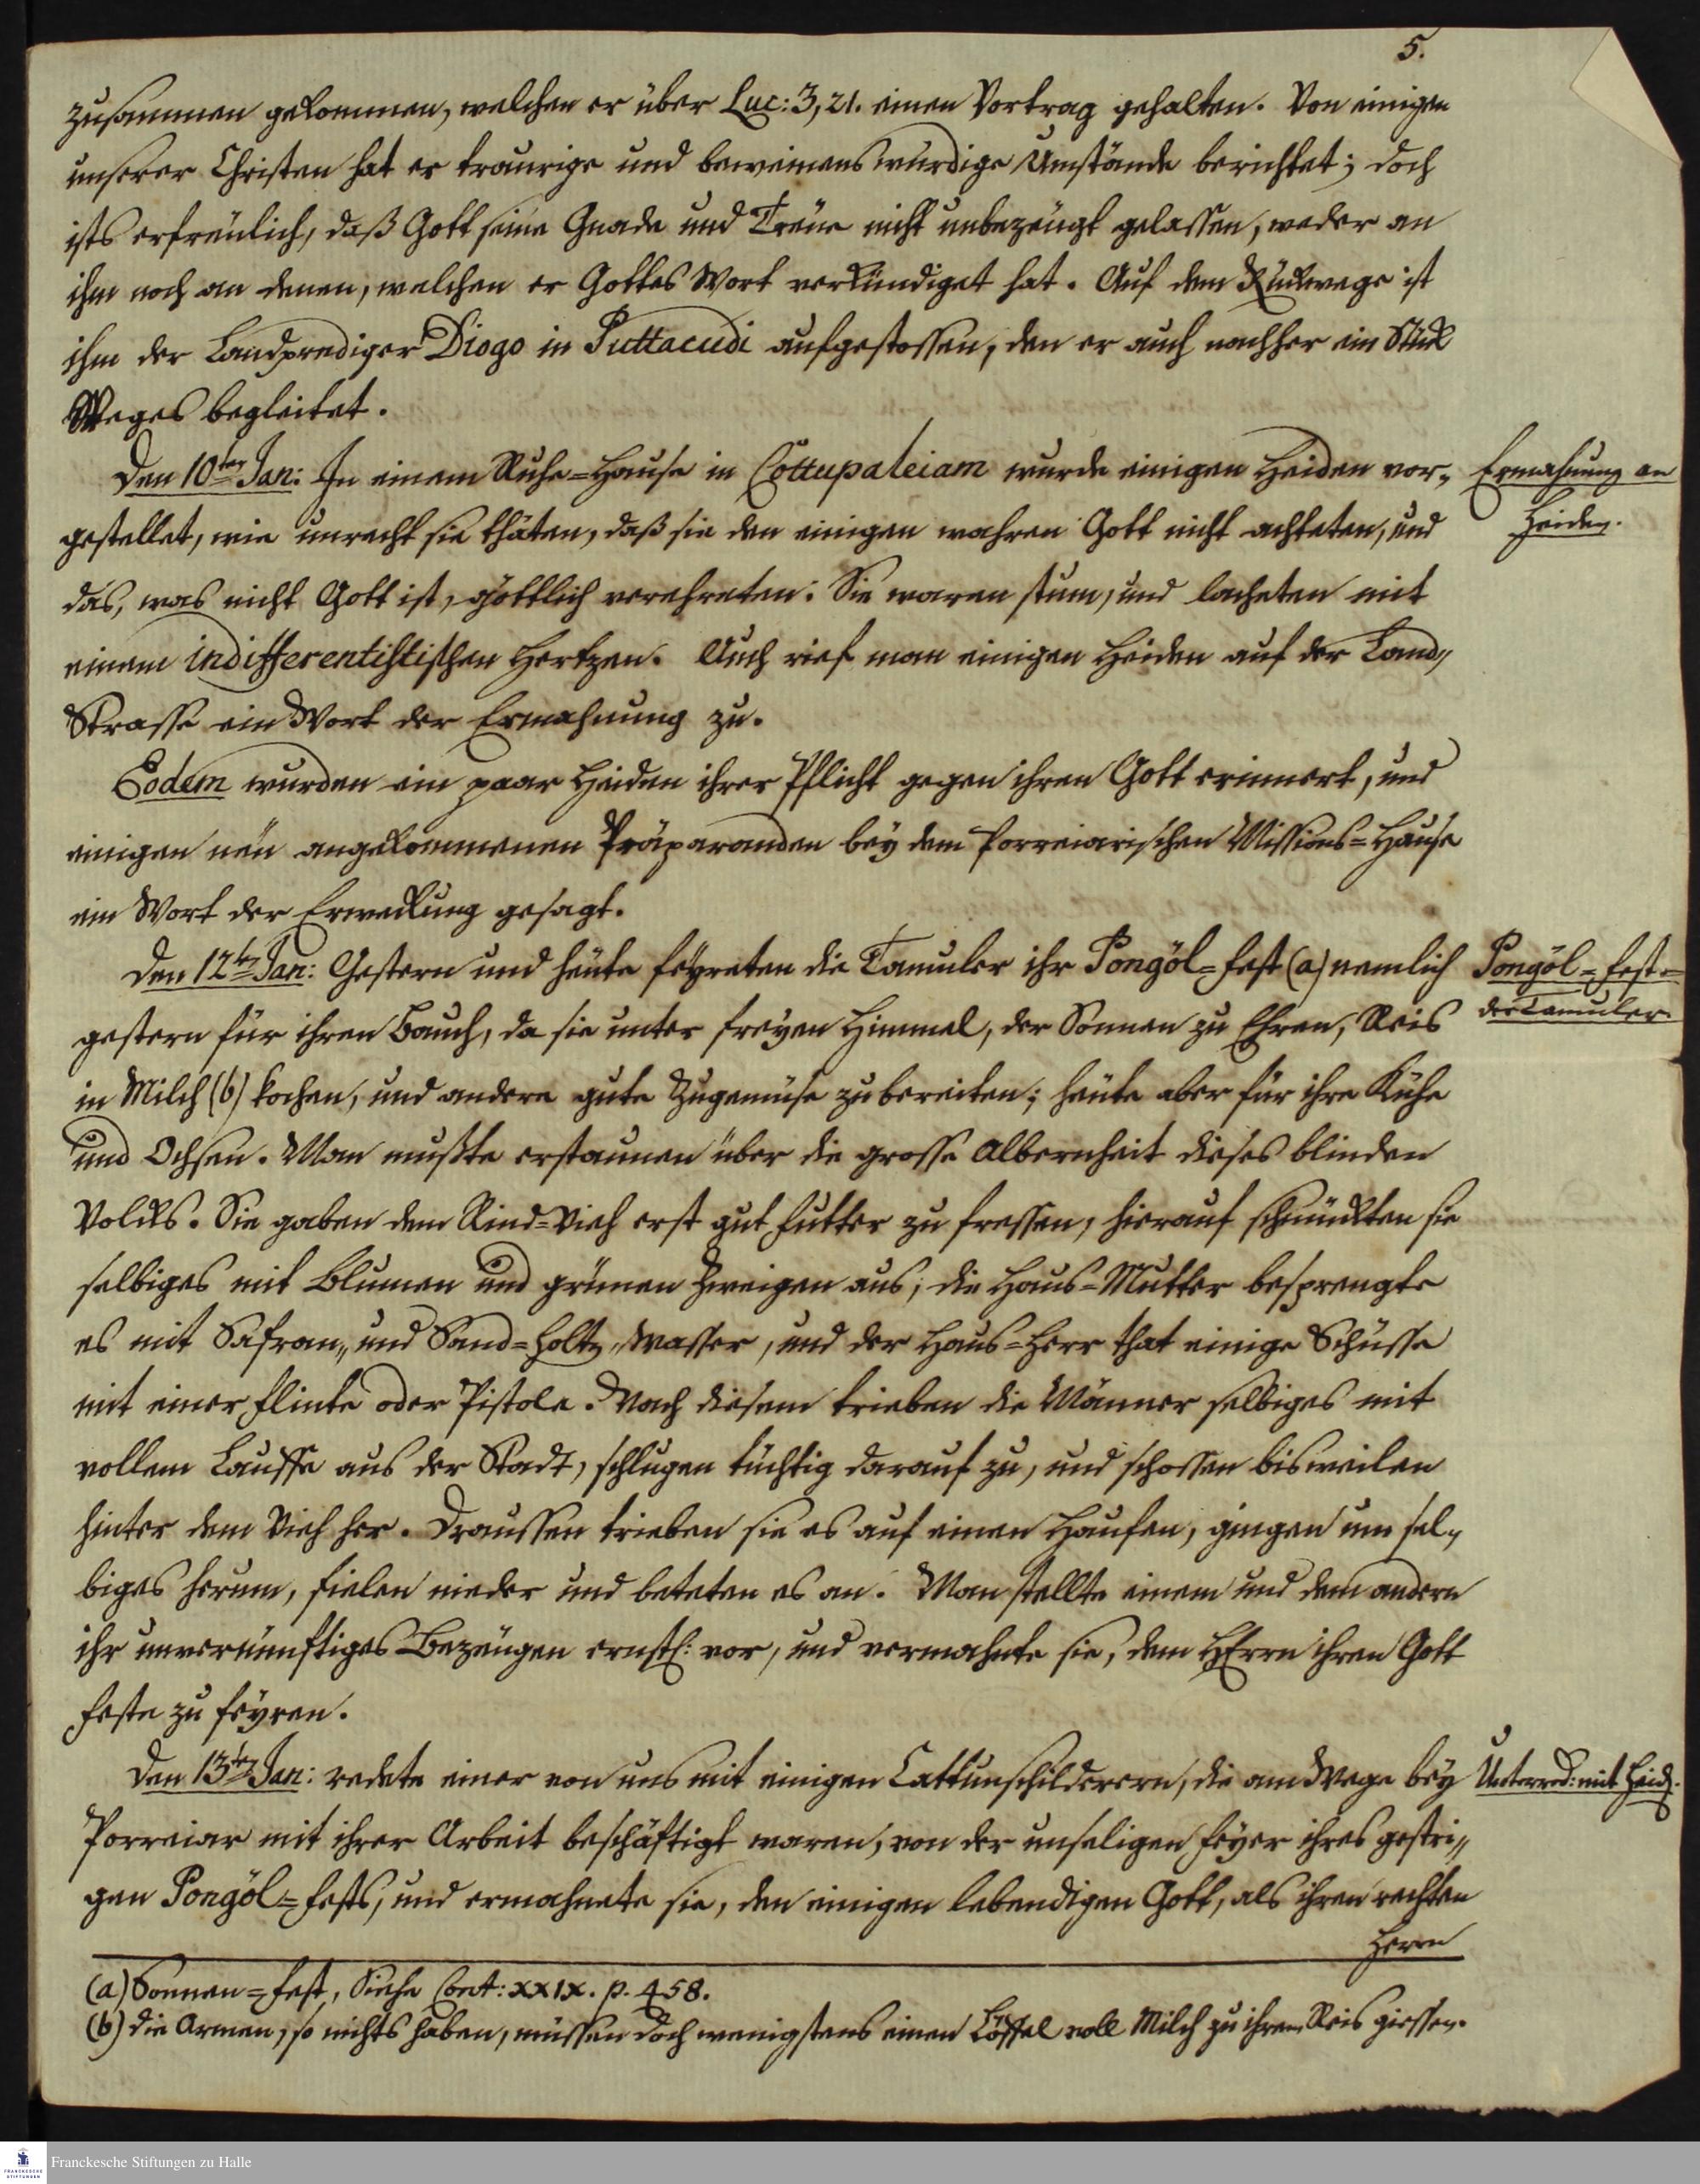 5.
zusammen gekommen, welchen er über Luc: 3, 21. einen Vortrag gehalten. Von einigen
unserer Christen hat er traurige und beweinenswürdige Umstände berichtet; doch
ists erfreulich, daß Gott seine Gnade und Treüe nicht unbezeügt gelassen, weder an
ihm noch an denen, welchen er Gottes Wort verkündiget hat. Auf dem Rückwege ist
ihm der Landprediger Diogo in Puttacudi aufgestossen, den er auch nachher ein Stück
Weges begleitet.
Den 10ten Jan: In einem Ruhe=Hause in Cottupaleiam wurde einigen Heiden vor„
Ermahnung an
gestellet, wie unrecht sie thäten, daß sie den einigen wahren Gott nicht achteten, und
Heiden.
das, was nicht Gott ist, göttlich verehreten. Sie waren stum, und lacheten mit
einem indifferentistischen Hertzen. Auch rief man einigen Heiden auf der Land„
Strasse ein Wort der Ermahnung zu.
Eodem wurden ein paar Heiden ihrer Pflicht gegen ihren Gott erinnert, und
einigen neü angekommenen Präparanden bey dem Porreiarischen Missions=Hause
ein Wort der Erweckung gesagt.
Den 12ten Jan: Gestern und heüte feyreten die Tamuler ihr Pongöl=Fest (a) nemlich
Pongöl=Fest
gestern für ihren Bauch, da sie unter freyen Himmel, der Sonnen zu Ehren, Reis
der Tamuler
in Milch (b) kochen, und andere gute Zugemüse zubereiten; heüte aber für ihre Kühe
und Ochsen. Man mußte erstaunen über die grosse Albernheit dieses blinden
Volcks. Sie gaben dem Rind=Vieh erst gut Futter zu fressen, hierauf schmückten sie
selbiges mit Blumen und grünen Zweigen aus; die Haus=Mutter besprengte
es mit Safran„ und Sand=Holtz„Wasser, und der Haus=Herr that einige Schüsse
mit einer Flinte oder Pistole. Nach diesem trieben die Männer selbiges mit
vollem Lauffe aus der Stadt, schlugen tüchtig darauf zu, und schossen bisweilen
hinter dem Vieh her. Draussen trieben sie es auf einen Haufen, gingen um sel„
biges herum, fielen nieder und beteten es an. Man stellte einem und dem andern
ihr unvernünftiges Bezeügen ernstl: vor, und vermahnte sie, dem HErrn ihren Gott
Feste zu feyren.
Den 13ten Jan: redete einer von uns mit einigen Cattunschilderern, die am Wege bey
Unterred: mit Heid.
Porreiar mit ihrer Arbeit beschäftigt waren, von der unseligen Feyer ihres gestri„
gen Pongöl=Fests, und ermahnete sie, den einigen lebendigen Gott, als ihren rechten
Herrn
(a) Sonnen=Fest, Siehe Cont: XXIX. p. 458.
(b) die Armen, so nichts haben, müssen doch wenigstens einen Löffel voll Milch zu ihrem Reis giessen.
Franckesche Stiftungen zu Halle